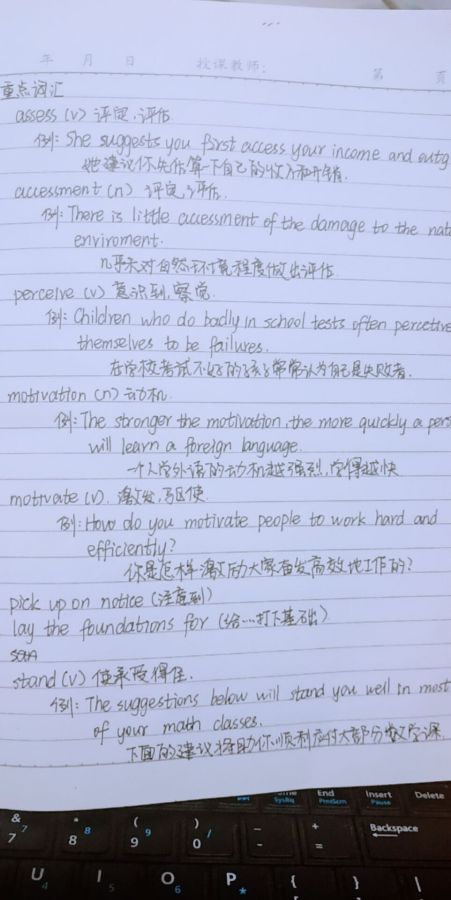 年 月 日 授课教师: 第 页
重点词汇
assess (v) 评定,评估
例: She suggests you first access your income and outg
她建议你先估算下自己的收入和开销.
accessment (n) 评定,评估.
例: There is little accessment of the damage to the nat
enviroment.
几乎未对自然环境程度做出评估.
perceive (v) 意识到,察觉.
例: Children who do badly in school tests often percetive
themselves to be failures.
在学校考试不好的孩子常常认为自己是失败者.
motivation (n) 动机.
例: The stronger the motivation, the more quickly a pers
will learn a foreign language.
一个人学外语的动机越强烈,学得越快
motivate (v). 激发,驱使
例: How do you motivate people to work hard and
efficiently?
你是怎样激励大家奋发高效地工作的?
pick up on notice (注意到)
lay the foundations for (给...打下基础)
stand (v) 使承受得住.
例: The suggestions below will stand you well in most
of your math classes.
下面的建议将助你顺利应付大部分数学课.
SysRq End PrntScrn Insert Pause Delete
& 7 7 * 8 8 ( 9 9 ) 0 / - + = Backspace
U 4 I 5 O 6 P * { } |